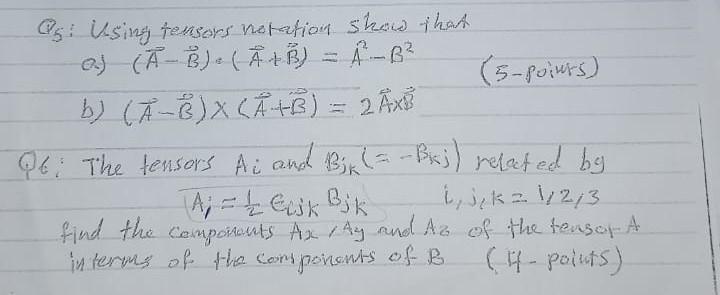 Q5: Using tensors notation show that
a) (A⃗ - B⃗) · (A⃗ + B⃗) = A² - B²
(5-points)
b) (A⃗ - B⃗) × (A⃗ + B⃗) = 2 A⃗ × B⃗
Q6: The tensors Ai and Bjk (= -Bkj) related by
Ai = 1/2 ϵijk Bjk i, j, k = 1, 2, 3
find the components Ax, Ay and Az of the tensor A
in terms of the components of B (4-points)